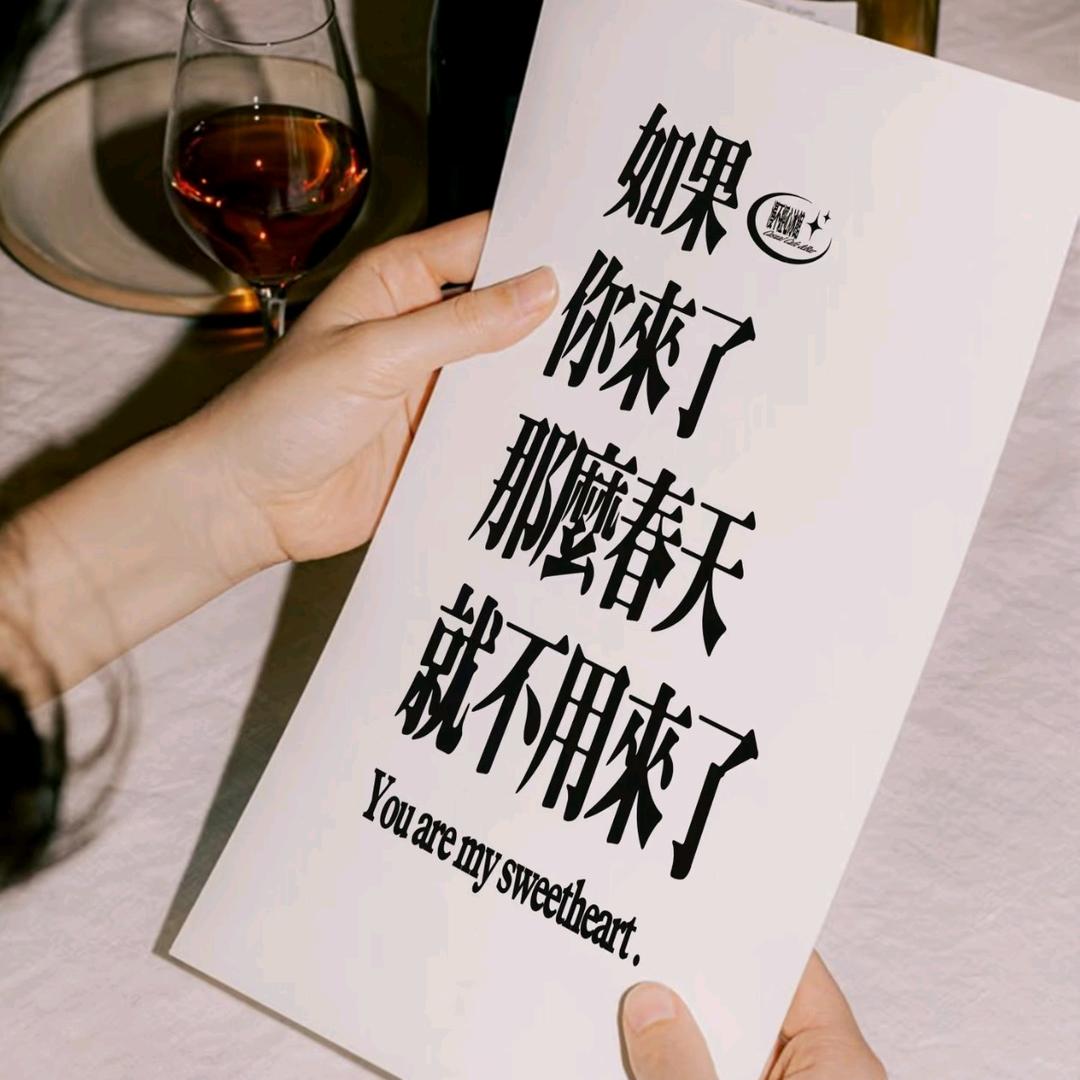 如果
你來了
那麼春天
就不用來了
You are my sweetheart.